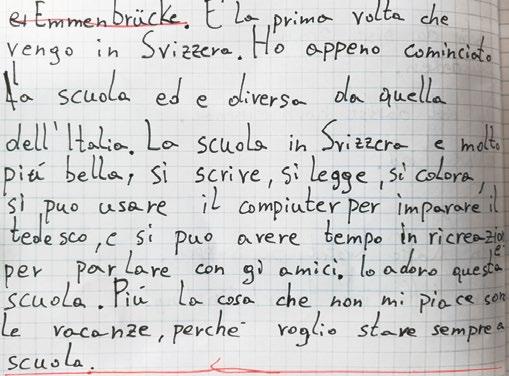 e Emmenbrücke. E La prima volta che
vengo in Svizzera. Ho appeno cominciato
la scuola ed e diversa da quella
dell'Italia. La scuola in Svizzera e molto
piú bella, si scrive, si legge, si colora,
si puo usare il compiuter per imparare il
tedesco, e si puo avere tempo in ricreazione
per parlare con gi amici. Io adoro questa
scuola. Piú la cosa che non mi piace son
le vacanze, perche voglio stare sempre a
scuola.